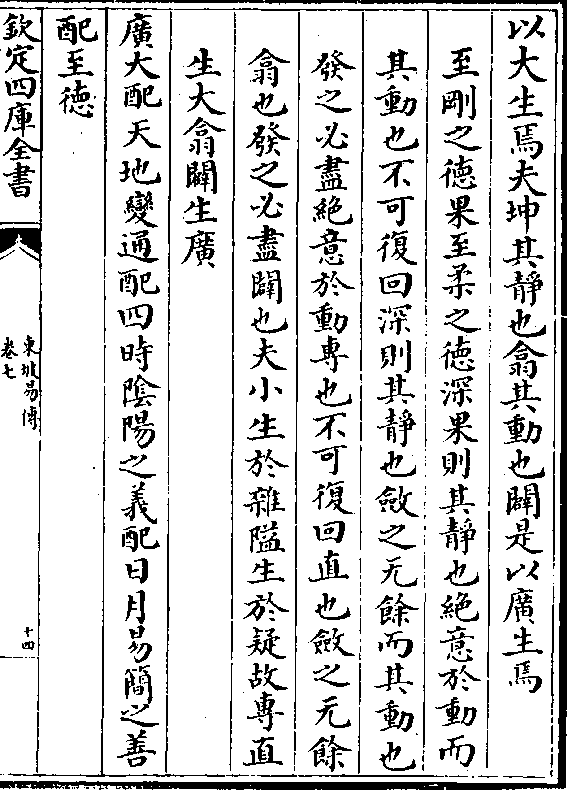 以大生焉夫坤其靜也翕其動也闢是以廣生焉
至剛之德果至柔之德深果則其靜也絶意於動而
其動也不可復回深則其靜也斂之无餘而其動也
發之必盡絶意於動專也不可復回直也斂之无餘
翕也發之必盡闢也夫小生於雜隘生於疑故專直
生大翕闢生廣
廣大配天地變通配四時陰陽之義配日月易簡之善
配至德
欽定四庫全書
東坡易傳
卷七
十四